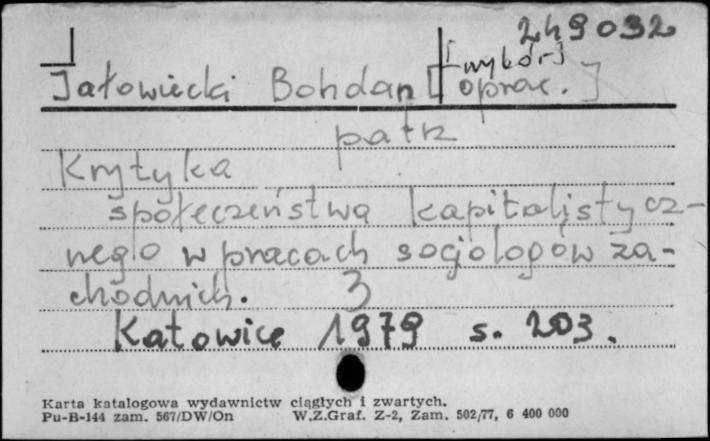 249032
[wybór]
Jałowiecki Bohdan [oprac.]
patrz
Krytyka
społeczeństwa kapitalistycz-
nego w pracach socjologów za-
chodnich. 3
Katowice 1979 s. 203.
Karta katalogowa wydawnictw ciągłych i zwartych.
Pu-B-144 zam. 567/DW/On W.Z.Graf. Z-2, Zam. 502/77, 6 400 000